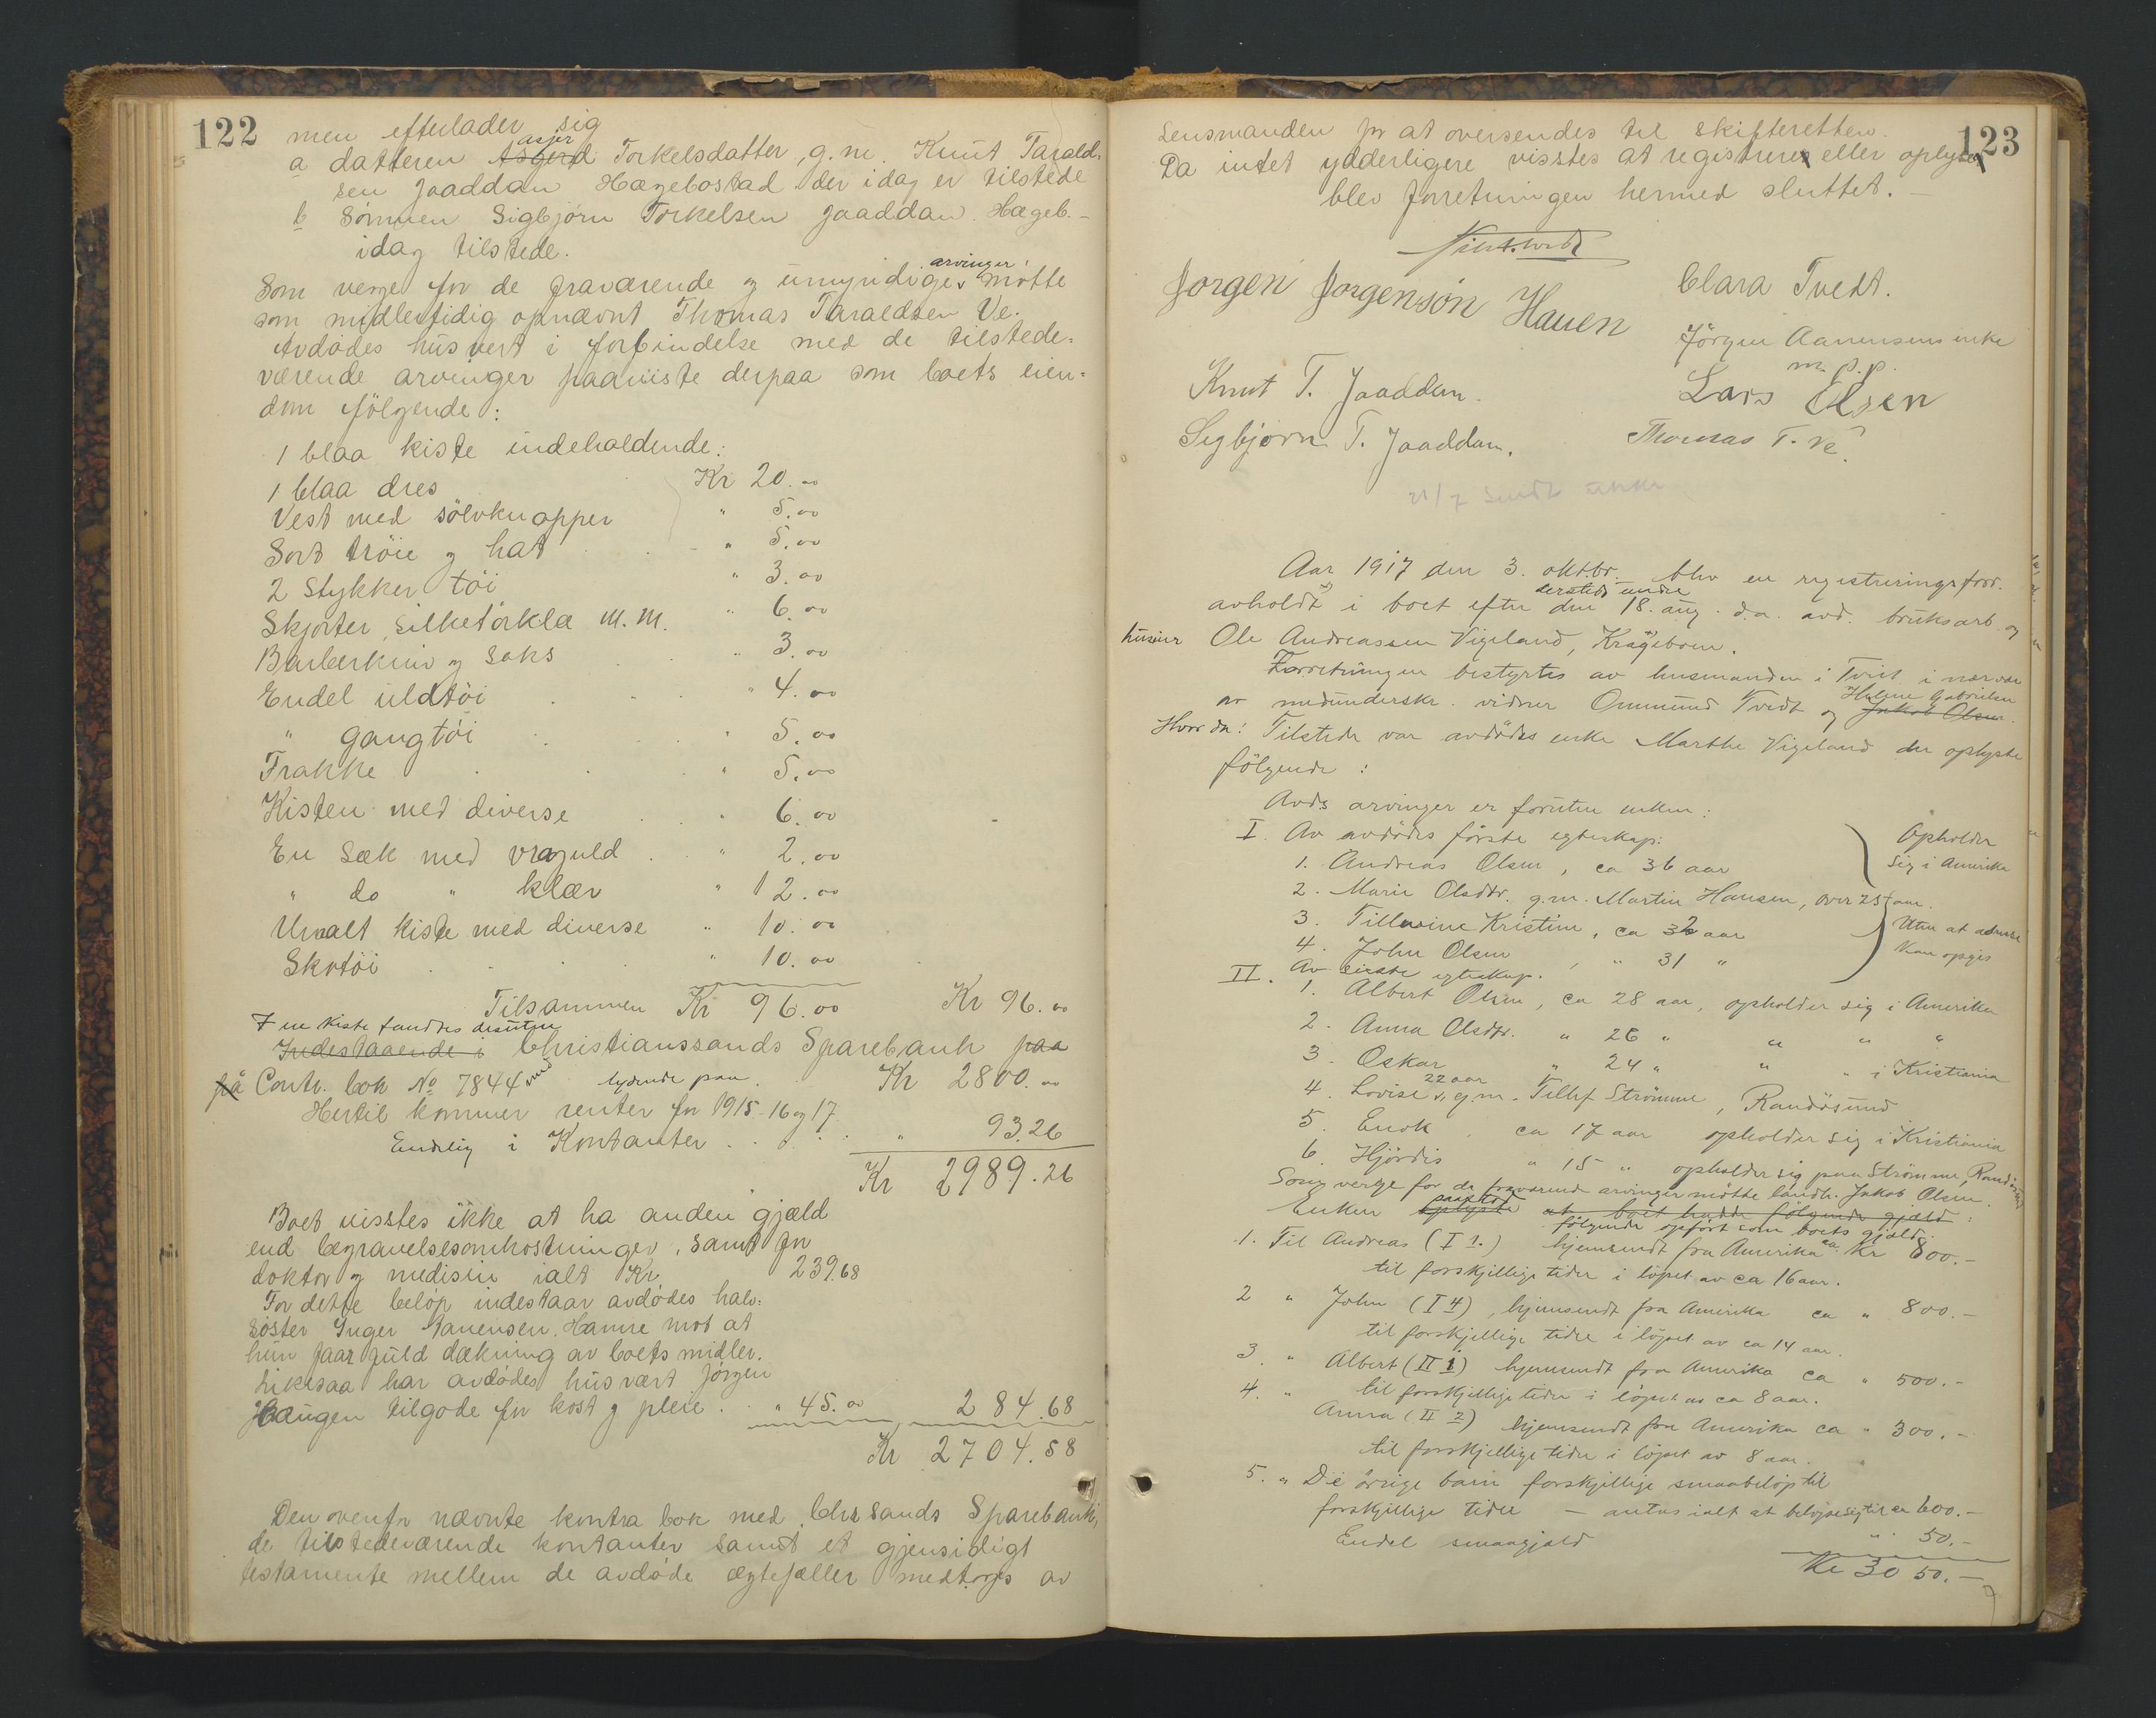 122
men efterlader sig
a datteren Asgerd asjer Torkelsdatter, g.m. Knut Tarald-
sen Jaaddan Hægebostad der idag er tilstede
b Sönnen Sigbjörn Torkelsen Jaaddan. Hægeb.-
idag tilstede.
Som verge for de fraværende og umyndige arvinger mötte
som midlertidig opnævnt Thomas Taraldsen Ve.
Avdödes husvert i forbindelse med de tilstede-
værende arvinger paaviste derpaa som boets eien-
dom fölgende:
1 blaa kiste indeholdende:
1 blaa dres Kr 20.00
Vest med sölvknapper " 5.00
Sort tröie og hat " 5.00
2 Stykker töi " 3.00
Skjorter, silketörklæ m.m. " 6.00
Barberkniv og saks " 3.00
Endel uldtöi " 4.00
" gangtöi " 5.00
Frakke " 5.00
Kisten med diverse " 6.00
En Sæk med vraguld " 2.00
" do " klær " 12.00
Umalt kiste med diverse " 10.00
Skotöi " 10.00
Tilsammen Kr 96.00 Kr 96.00
I en kiste fandtes desuten
Indestaaende i Christianssands Sparebank paa
på Contr. bok No 7844 med lydende paa Kr 2800.00
Hertil kommer renter for 1915-16 og 17
Endelig i Kontanter " 93.26
Kr 2989.26
Boet visstes ikke at ha anden gjæld
end begravelsesomkostninger, samt for
doktor og medisin ialt Kr 239.68
For dette belöp indestaar avdödes halv-
söster Inger Aanensen. Hamre mot at
hun faar fuld dækning av boets midler.
Likesaa har avdödes husvært Jörgen
Haugen tilgode for kost og pleie. " 45.00 284.68
Kr 2704.58
Den ovenfor nævnte kontra bok med Chrsands Sparebank,
de tilstedeværende kontanter samt et gjensidigt
testamente mellem de avdöde ægtefæller medtages av
123
Lensmanden for at oversendes til skifteretten.
Da intet ydderligere visstes at registrere eller oplyse
blev forretningen hermed sluttet.-
Jorgen Jorgensön Hauen
Clara Tvedt.
Jörgen Aanensens enke
m.p.p.
Knut T. Jaaddan.
Lars Elsen
Segbjörn T. Jaaddan.
Thomas T. Ve.
21/7 Sendt
Aar 1917 den 3. oktbr. blev en registreringsforr.
avholdt i boet efter den dersteds under 18. aug. d.a. avd. bruksarb og
huseier Ole Andreassen Vigeland, Krageboen.
Forretningen bestyrtes av lensmanden i Tveit i nærvær
av medunderskr. vidner Ommund Tvedt og Jakob Olsen Helene Gabrielsen.
Hvor da: Tilstede var avdödes enke Marthe Vigeland der oplyste
fölgende:
Avds arvinger er foruten enken:
I. Av avdödes förste egteskap:
1. Andreas Olsen, ca 36 aar
Opholder
sig i Amerika
2. Marie Olsdtr. g.m. Martin Hansen, over 25 aar.
3. Tillusine Kristine, ca 32 aar
4. John Olsen, " 31 "
Uten at adresse
kan opgis
II. Av sidste egteskap.
1. Albert Olsen, ca 28 aar, opholder sig i Amerika
2. Anna Olsdtr. " 26 " " " "
3. Oskar " 24 " " " i Kristiania
4. Lovise 22 aar, g.m. Tellef Strömme, Randösund
5. Enok, ca 17 aar opholder sig i Kristiania
6. Hjördis " 15 " opholder sig paa Strömme, Randösund
Som verge for de fraværende arvinger mötte landh. Jakob Olsen
Enken oplyste paastod at boet hadde fölgende gjæld:
fölgende opfört som boets gjæld:
1. Til Andreas (I 1.) hjemsendt fra Amerika ca Kr 800.-
til forskjellige tider i löpet av ca 16 aar.
2 " John (I 4), hjemsendt fra Amerika ca " 800.-
til forskjellige tider i löpet av ca 14 aar.
3. " Albert (II 1) hjemsendt fra Amerika ca " 500.-
til forskjellige tider i löpet av ca 8 aar.
4. " Anna (II 2) hjemsendt fra Amerika ca " 300.-
til forskjellige tider i löpet av 8 aar.
5. " De övrige barn forskjellige smaabelöp til
forskjellige tider - antas ialt at belöpe sig til ca 600.-
Endel smaagjæld " 50.-
Kr 3050.-